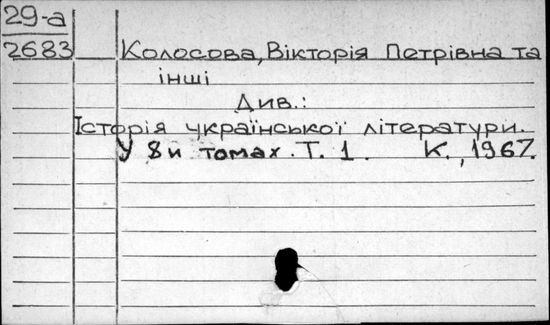 29-а
2683
Колосова, Вікторія Петрівна та
інші
Див.:
Історія української літератури.
У 8и томах. Т. 1. К., 1967.